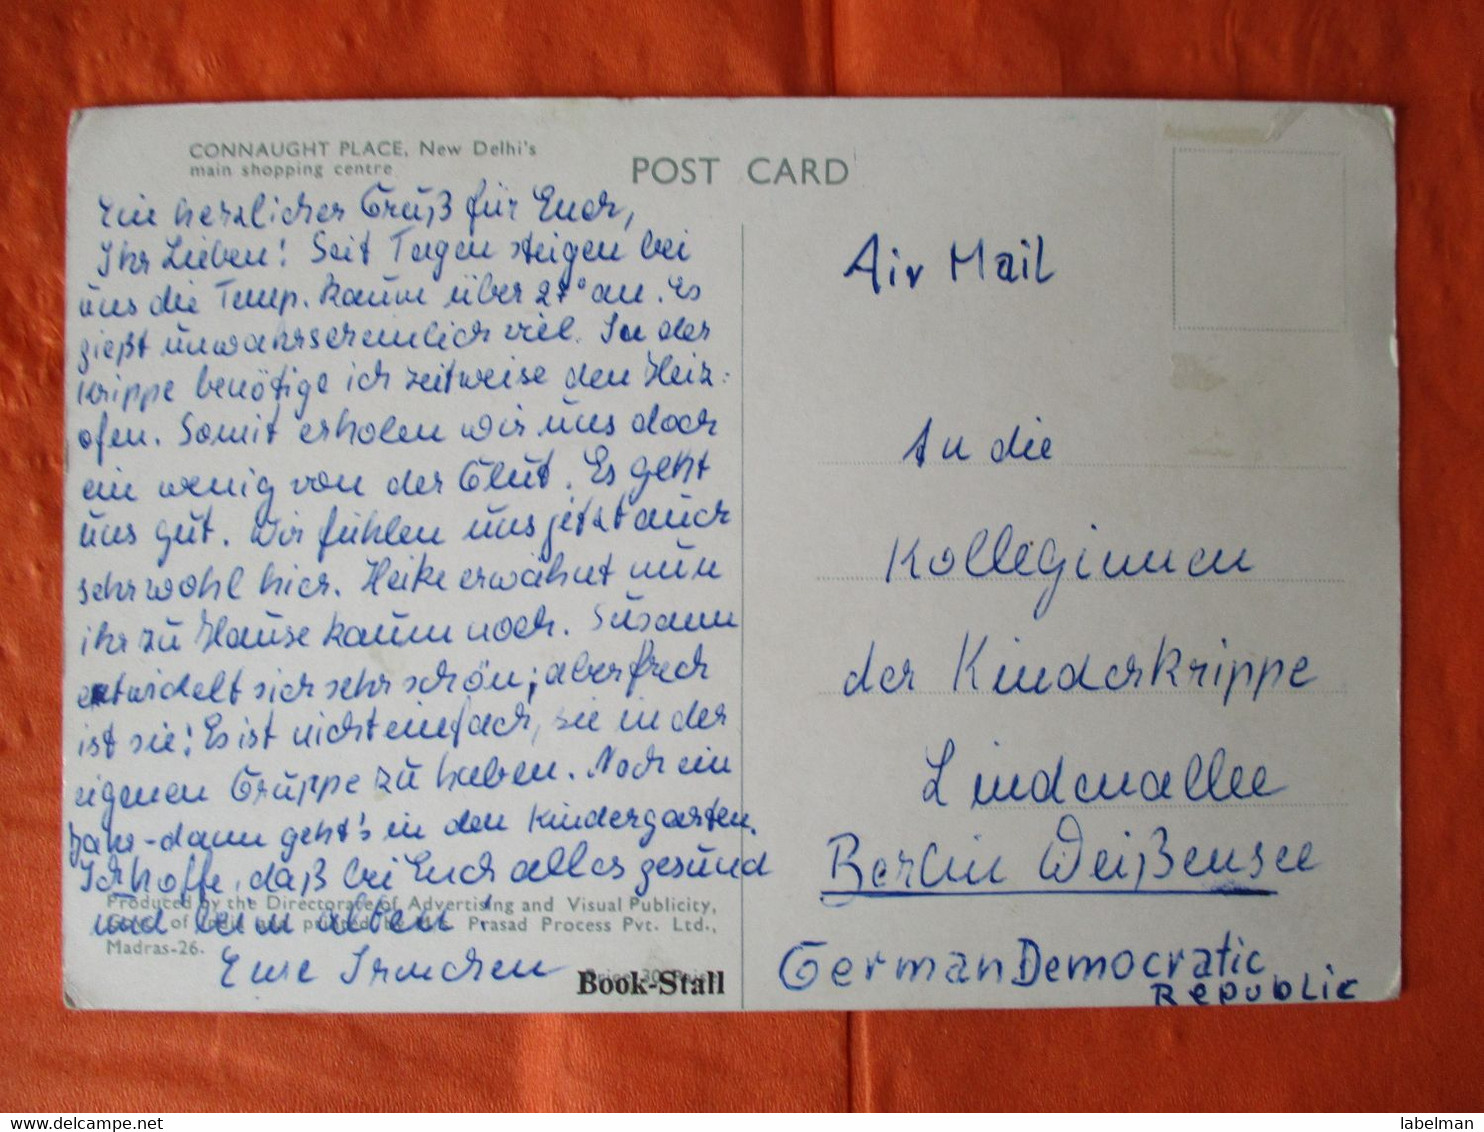 CONNAUGHT PLACE, New Delhi's
main shopping centre
POST CARD
Ein herzlicher Gruß für Euch,
Ihr Lieben! Seit Tagen steigen bei
uns die Temp. kaum über 27° an. Es
gießt unwahrscheinlich viel. In der
Krippe benötige ich zeitweise den Heiz-
ofen. Somit erholen wir uns doch
ein wenig von der Glut. Es geht
uns gut. Wir fühlen uns jetzt auch
sehr wohl hier. Heike erwähnt nun
ihr zu Hause kaum noch. Susann
entwickelt sich sehr schön; aber frech
ist sie! Es ist nicht einfach, sie in der
eigenen Gruppe zu haben. Noch ein
Jahr - dann geht's in den Kindergarten.
Ich hoffe, daß bei Euch alles gesund
und beim alten!
Eure Irmchen
Produced by the Directorate of Advertising and Visual Publicity,
of Prasad Process Pvt. Ltd.,
Madras-26.
Price: 30 Paise
Book-Stall
Air Mail
An die
Kolleginnen
der Kinderkrippe
Lindenallee
Berlin Weißensee
German Democratic
Republic
labelman
www.delcampe.net